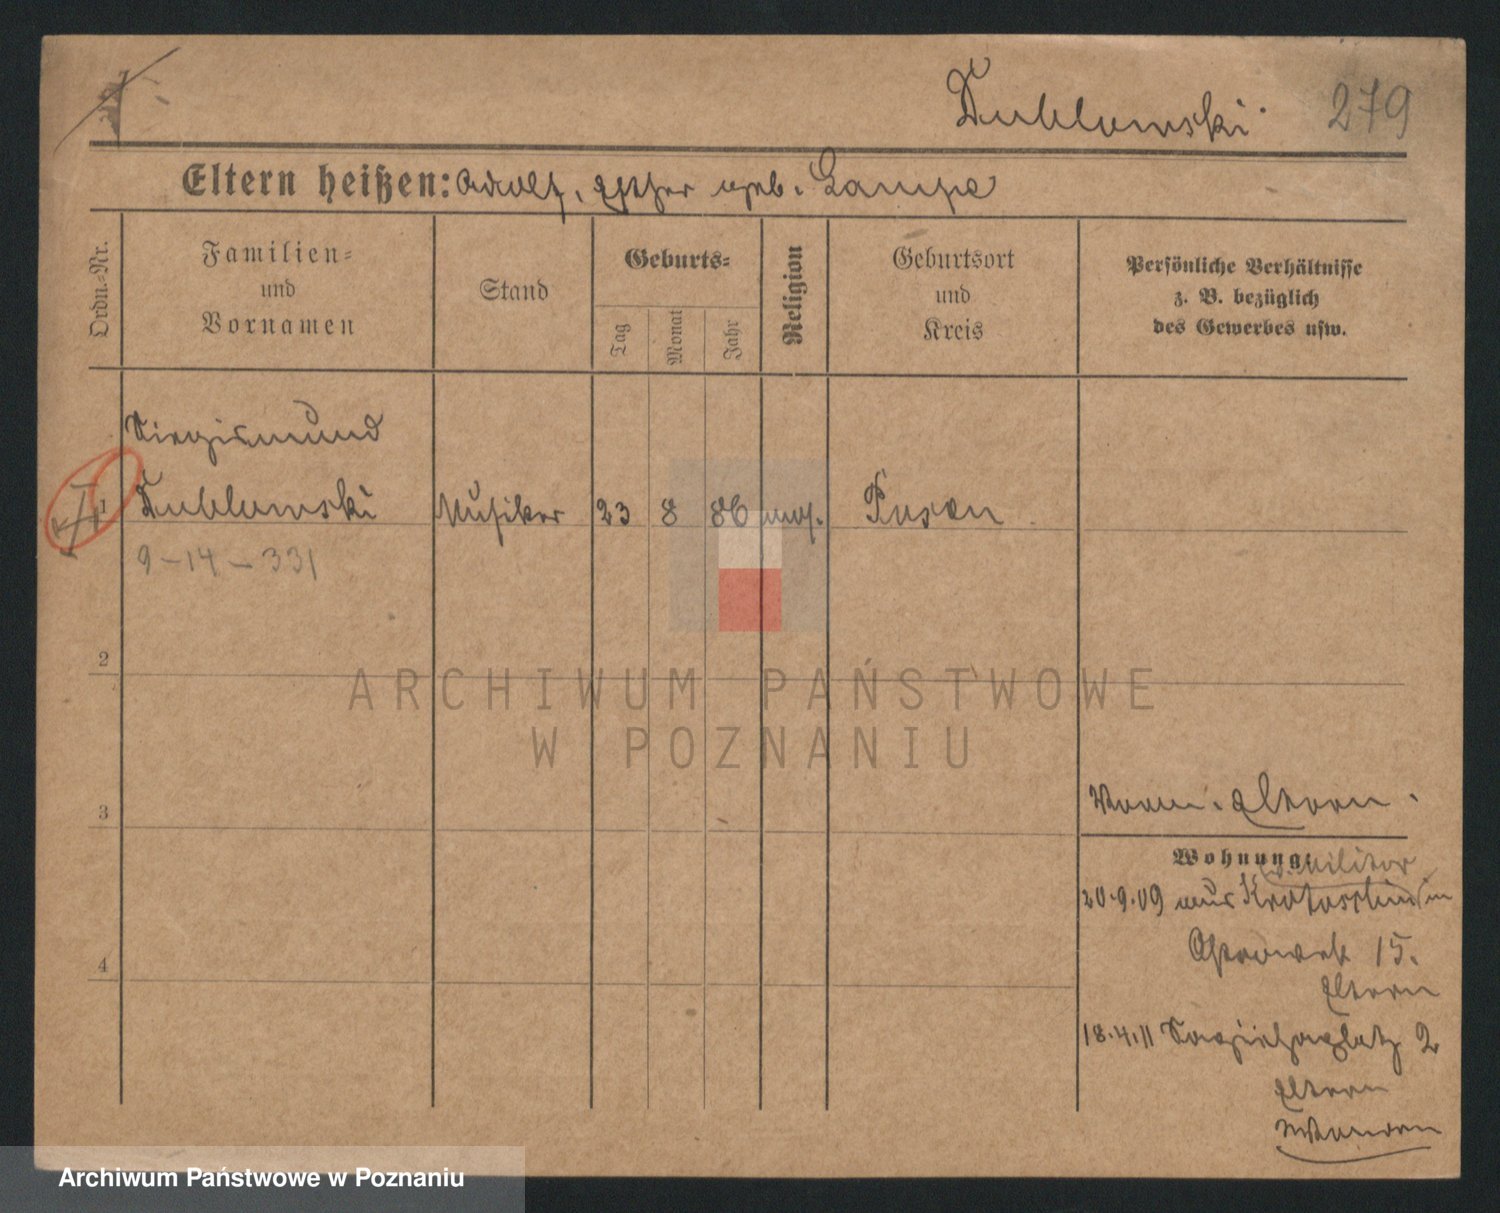 Dublowski. 279
Eltern heißen: Adolf, Esther geb. Lampe
Ordn.-Nr.
Familien-
und
Vornamen
Stand
Geburts-
Tag
Monat
Jahr
Religion
Geburtsort
und
Kreis
Persönliche Verhältnisse
z. B. bezüglich
des Gewerbes usw.
Siegismund
1 Dublowski Musiker 23 8 86 mos. Posen
9-14-331
2
ARCHIWUM PAŃSTWOWE
W POZNANIU
3
Eltern.
Wohnung:
Militär
20.9.09 aus Krotoschin
15.
Eltern
4
18.4.11 Sapiehaplatz 2
Eltern
Archiwum Państwowe w Poznaniu